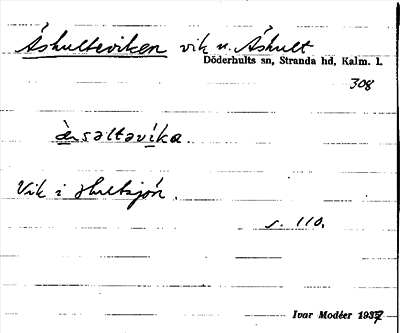 Åskulteviken vik n. Åshult
Döderhults sn, Stranda hd, Kalm. l.
308
Vik i Hultsjön.
s. 110.
Ivar Modéer 1937